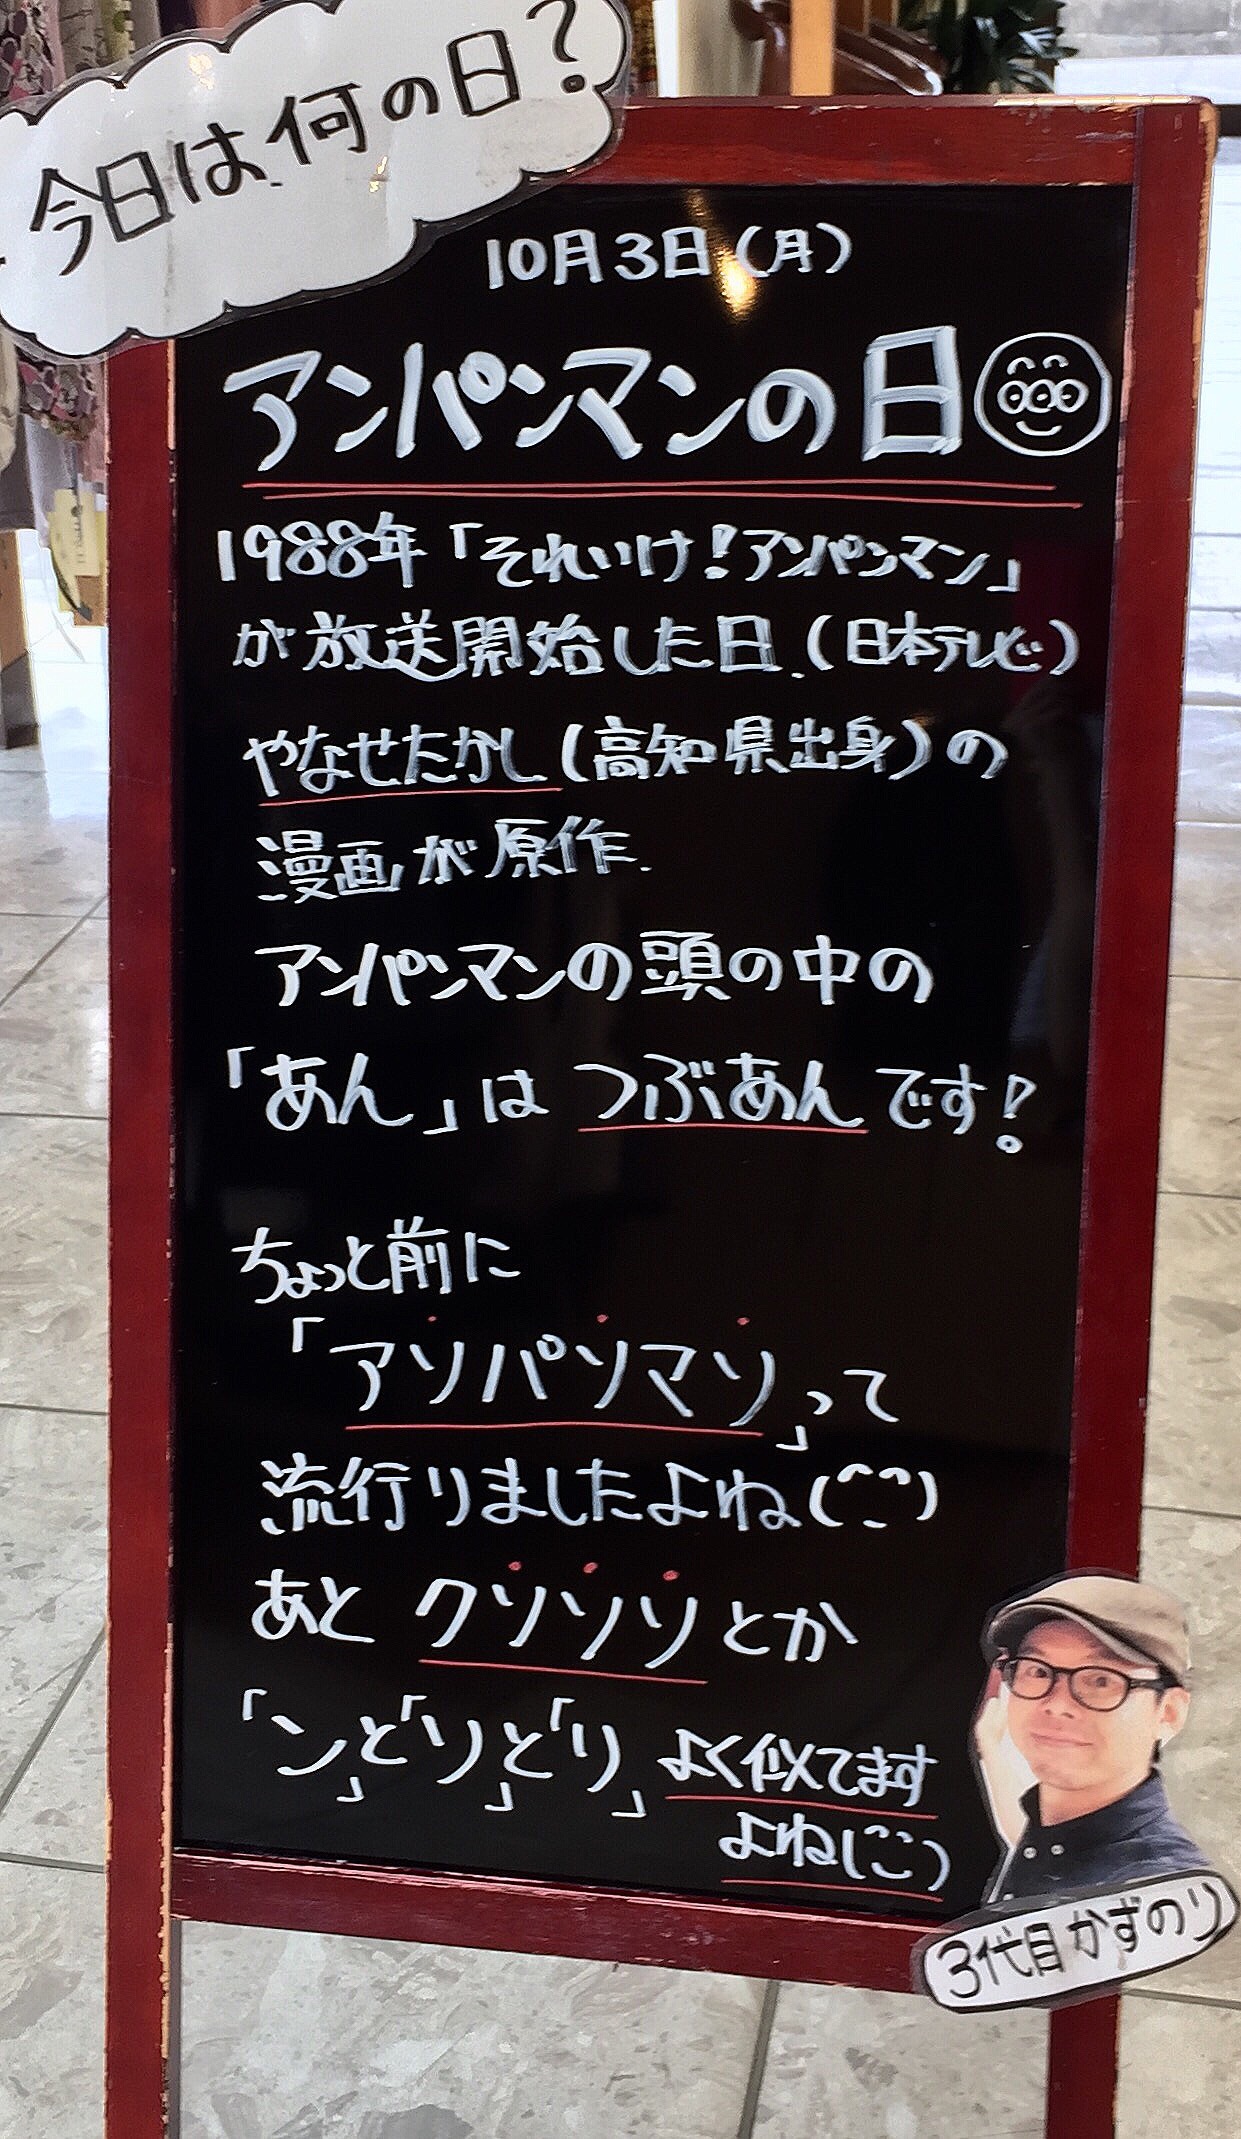 今日は何の日?
10月3日(月)
アンパンマンの日
1988年「それいけ!アンパンマン」
が放送開始した日.(日本テレビ)
やなせたかし(高知県出身)の
漫画が原作.
アンパンマンの頭の中の
「あん」はつぶあんです!
ちょっと前に
「アソパソマソ」って
流行りましたよね(^-^)
あと クソソソとか
「ン」と「ソ」と「リ」よく似てます
よね(^-^)
3代目かずのり